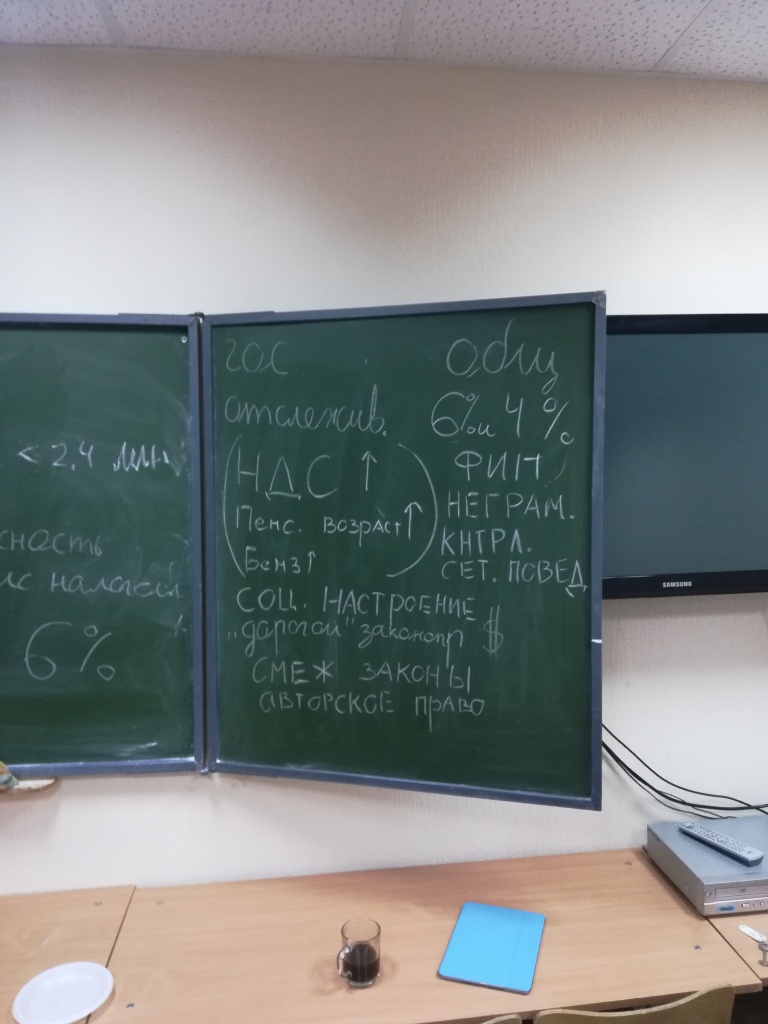 < 2,4 млн
6%
гос
отслежив.
(НДС ↑
Пенс. возраст ↑
Бенз ↑)
СОЦ. НАСТРОЕНИЕ
„дорогой" законопр $
СМЕЖ ЗАКОНЫ
АВТОРСКОЕ ПРАВО
общ
6% и 4%
НЕГРАМ.
КНТРЛ.
СЕТ. ПОВЕД
SAMSUNG